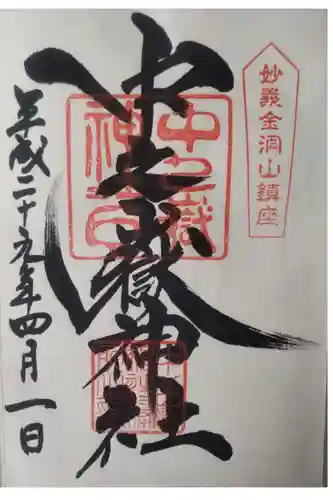 妙義金洞山鎮座
中之嶽神社
平成二十九年四月一日